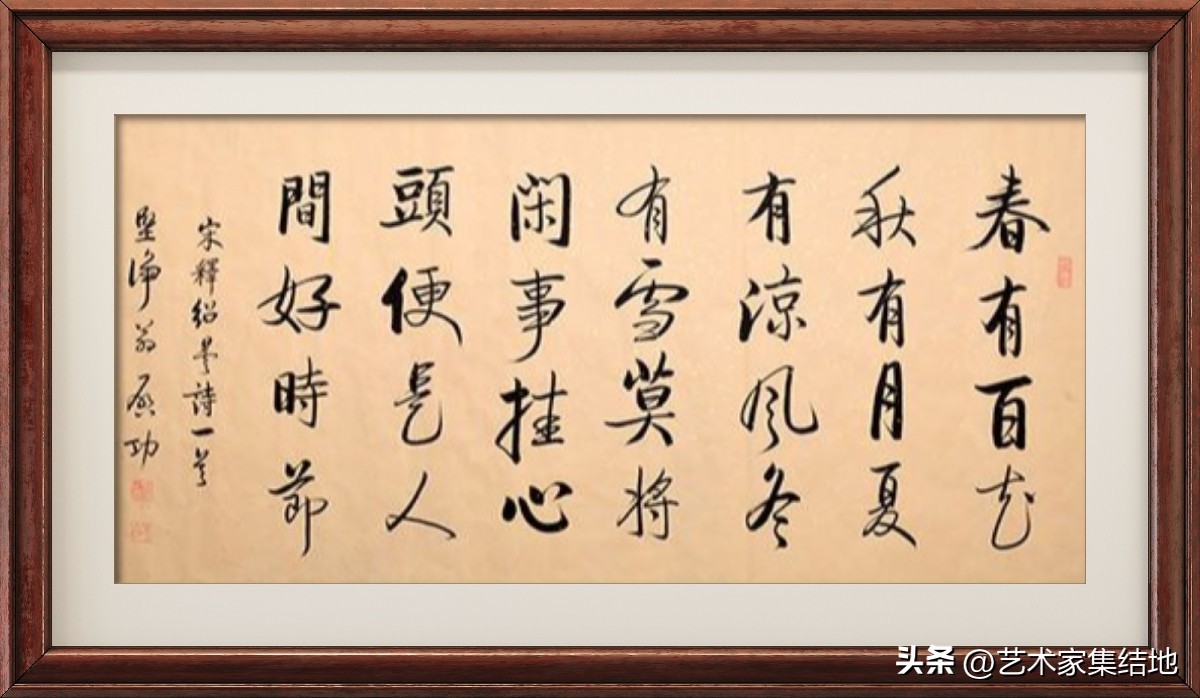 春有百花
秋有月夏
有涼风冬
有雪莫将
閑事挂心
頭便是人
間好時節
宋釋紹昙詩一首
坚净翁启功
头条 @艺术家集结地